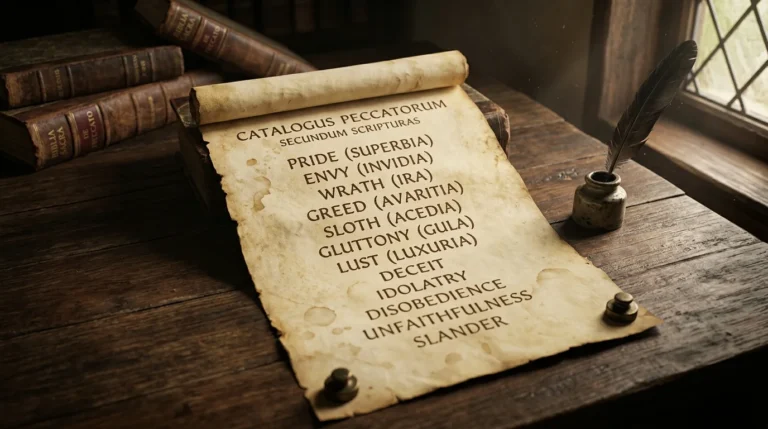 CATALOGUS PECCATORUM
SECUNDUM SCRIPTURAS
PRIDE (SUPERBIA)
ENVY (INVIDIA)
WRATH (IRA)
GREED (AVARITIA)
SLOTH (ACEDIA)
GLUTTONY (GULA)
LUST (LUXURIA)
DECEIT
IDOLATRY
DISOBEDIENCE
UNFAITHFULNESS
SLANDER